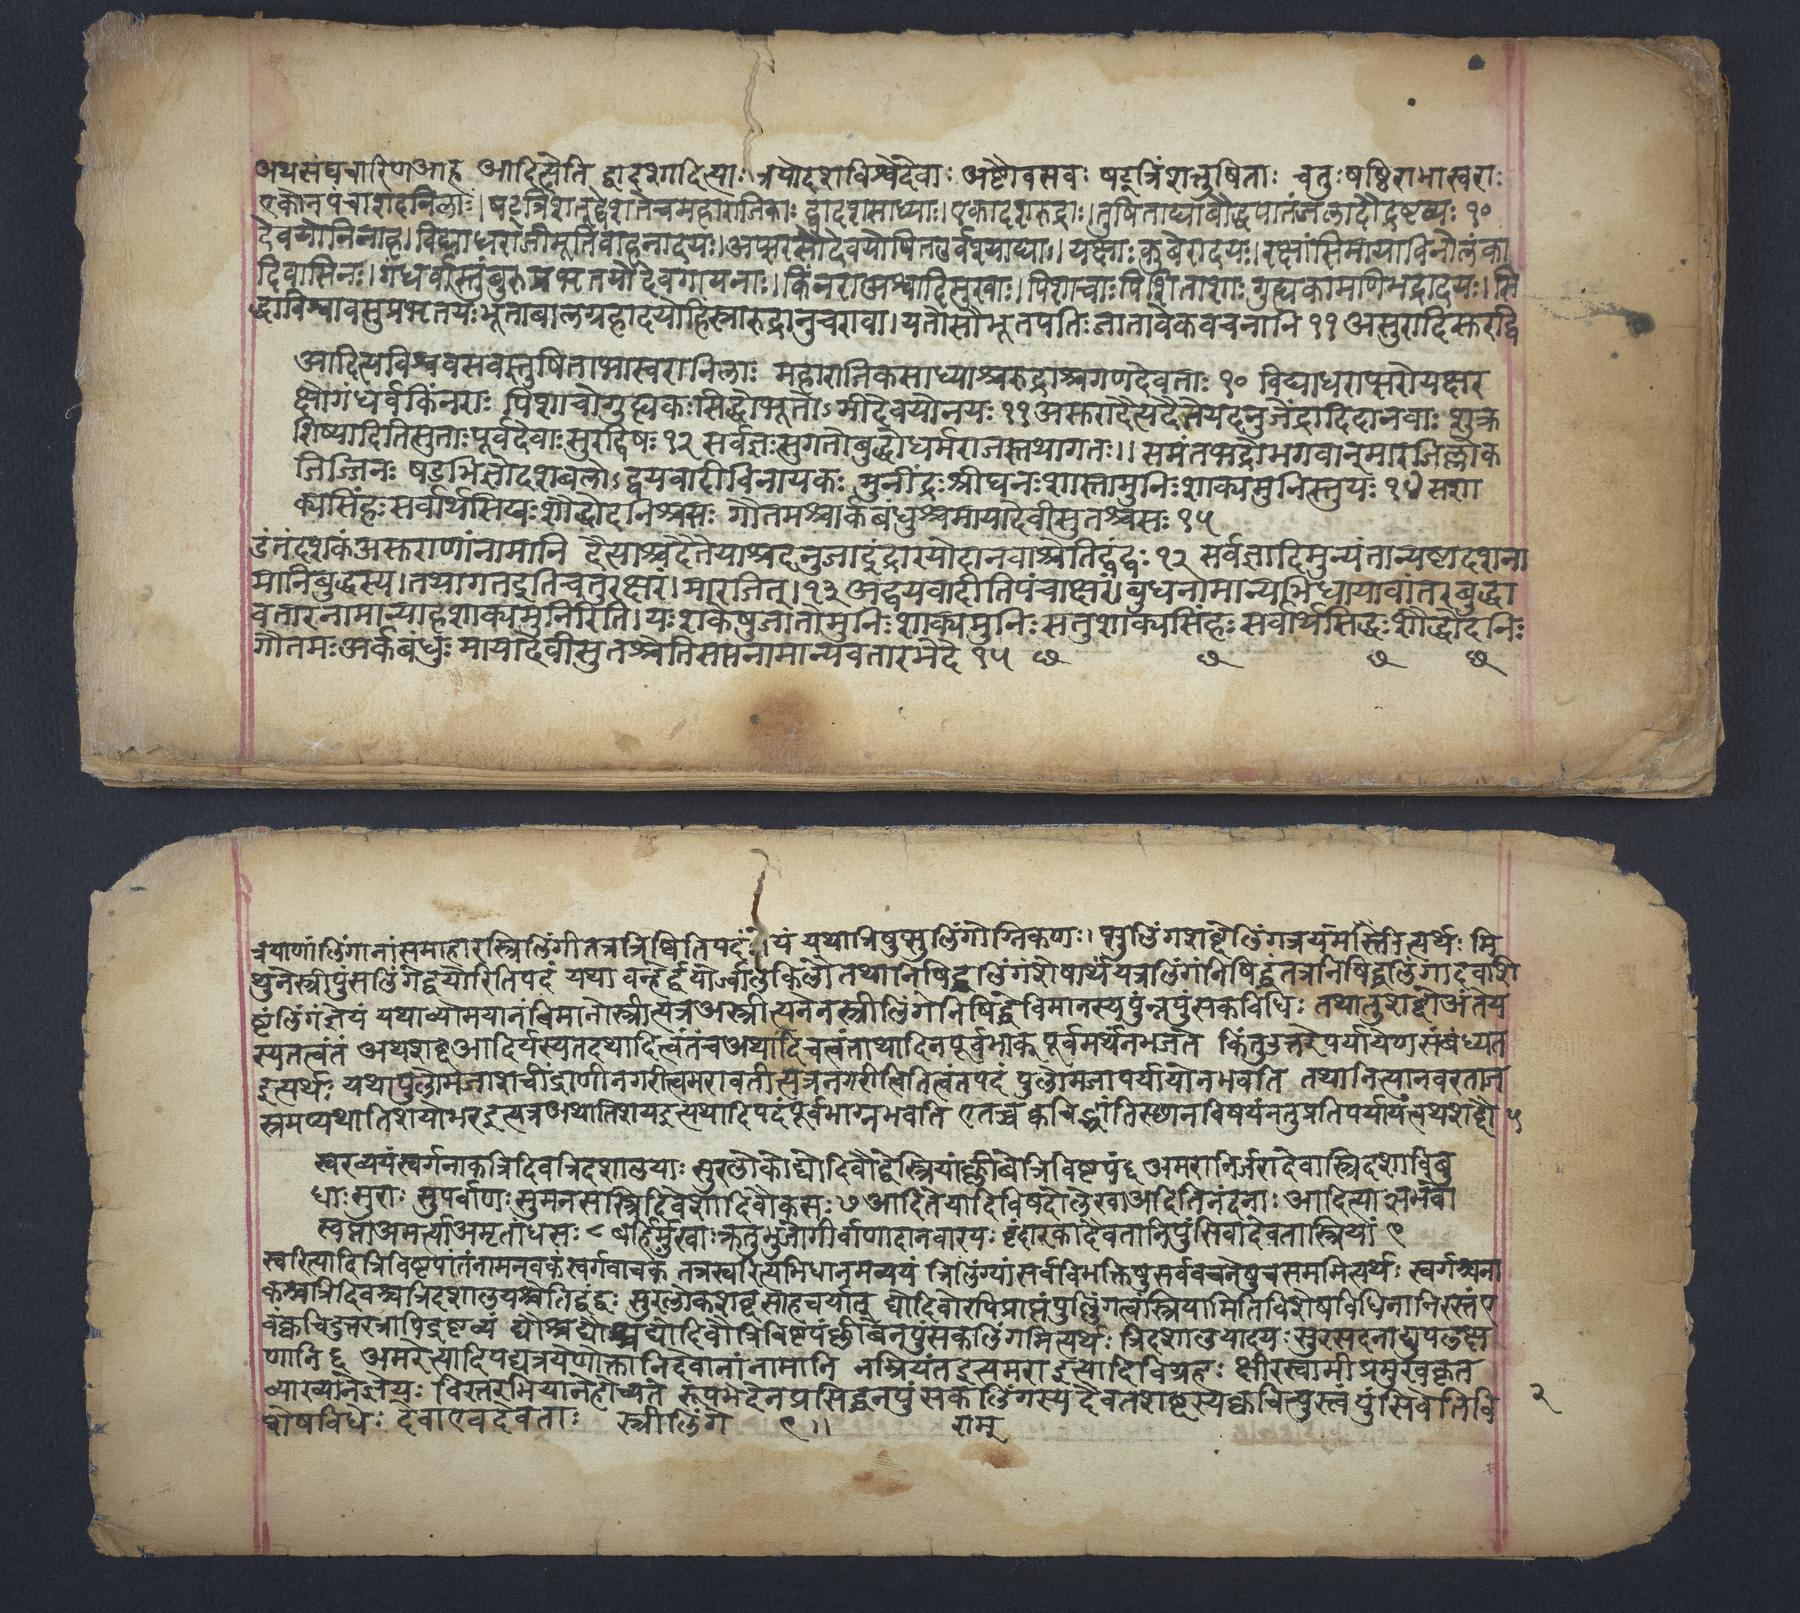 अथसंघचारिणआह आदित्येति द्वादशादित्याः त्रयोदशविश्वेदेवाः अष्टौवसवः षट्त्रिंशत्तुषिताः चतुःषष्ठिराभास्वराः
एकोनपंचाशदनिलाः। षट्त्रिंशत्
देवयोनिनाह। विद्याधराजीमूतवाहनादयः। अप्सरसोदेवयोषितउर्वश्याद्याः। यक्षाः कुबेरादयः। रक्षांसिमायाविनोलंका
दिवासिनः। गंधर्वास्तुंबुरुप्रभृतयोदेवगायनाः। किंनराअश्वादिमुखाः। पिशाचाः पिशिताशाः गुह्यकामणिभद्रादयः। सि
द्धाविश्वावसुप्रभृतयः भूताबालग्रहादयोहिंस्त्रारुद्रानुचरावा। यतोसौभूतपतिः जातावेकवचनानि ११ असुरादिस्तरद्वि
आदित्यविश्ववसवस्तुषिताभास्वरानिलाः महाराजिकसाध्याश्चरुद्राश्चगणदेवताः १० विद्याधराप्सरोयक्षर
क्षोगंधर्वकिंनराः पिशाचोगुह्यकःसिद्धोभूतोऽमीदेवयोनयः ११ असुरादैत्यदैतेयदनुजेंद्रारिदानवाः शुक्र
शिष्यादितिसुताःपूर्वदेवाःसुरद्विषः १२ सर्वज्ञःसुगतोबुद्धोधर्मराजस्तथागतः।। समंतभद्रोभगवान्मारजिल्लोक
जिज्जिनः षडभिज्ञोदशबलोऽद्वयवादीविनायकः मुनींद्रःश्रीघनःशास्तामुनिःशाक्यमुनिस्तुयः १४ सशा
क्यसिंहःसर्वार्थसिद्धःशौद्धोदनिश्चसः गौतमश्चार्कबंधुश्चमायादेवीसुतश्चसः १५
दैत्याश्चदैतेयाश्चदनुजाइंद्रारयोदानवाश्चेतिद्वंद्वः १२ सर्वज्ञादिमुन्यंतान्यष्टादशना
मानिबुद्धस्य। तथागतइतिचतुरक्षरं। मारजित्। १३ अद्वयवादीतिपंचाक्षरं। बुधनामान्यभिधायावांतरबुद्धा
वतारनामान्याहशाक्यमुनिरिति। यःशाकेषुजातोमुनिःशाक्यमुनिः सतुशाक्यसिंहः सर्वार्थसिद्धः शौद्धोदनिः
गौतमःअर्कबंधुः मायादेवीसुतश्चेतिसप्तनामान्यवतारभेदे १५ छ छ छ छ
त्रयाणांलिंगानांसमाहारस्त्रिलिंगीतत्रत्रिष्वितिपदं यं यथात्रिषुस्फुलिंगोग्निकणः। स्फुलिंगशब्देलिंगत्रयमस्तीत्यर्थः मि
थुनेस्त्रीपुंसलिंगद्वयोरितिपदं यथा वन्हेर्द्वयोर्ज्वालकीलौ तथानिषिद्धलिंगंशेषार्थंयत्रलिंगंनिषिद्धंतत्रनिषिद्धलिंगादवशि
ष्टंलिंगंज्ञेयं यथाव्योमयानंविमानोस्त्रीत्यत्रअस्त्रीत्यनेनस्त्रीलिंगेनिषिद्धेविमानस्यपुंन्नपुंसकविधिः तथातुशब्दोअंतेय
स्यतत्त्वंतं अथशब्दआदिर्यस्यतदथादित्वंतंचअथादिचत्वंताथादिनपूर्वभाक् पूर्वमर्थंनभजते किंतुउत्तरैपर्यायेणसंबंध्यत
इत्यर्थः यथापुलोमजाशचींद्राणीनगरीत्वमरावतीत्यत्रनगरीत्वितित्वंतपदं पुलोमजापर्यायोनभवति तथानित्यानवरताज
स्त्रमप्यथातिशयोभरइत्यत्रअथातिशयइत्यथादिपदंपूर्वभाग्नभवति ५
स्वरव्ययंस्वर्गनाकत्रिदिवत्रिदशालयाः सुरलोकोद्योदिवौद्वेस्त्रियांक्लीबेत्रिविष्टपं६ अमरानिर्जरादेवास्त्रिदशाविबु
धाःसुराः सुपर्वाणःसुमनसस्त्रिदिवेशादिवौकसः ७ आदितेयादिविषदोलेखाअदितिनंदनाः आदित्याऋभवो
स्वप्नाअमर्त्याअमृतांधसः ८ बर्हिर्मुखाःक्रतुभुजोगीर्वाणादानवारयः वृंदारकादैवतानिपुंसिवादेवतास्त्रियां ९
स्वरित्यादित्रिविष्टपांतंनामनवकंस्वर्गवाचकं तत्रस्वरित्यभिधानमव्ययं त्रिलिंग्यांसर्वविभक्तिषुसर्ववचनेषुचसममित्यर्थः स्वर्गश्चना
कश्चत्रिदिवश्चत्रिदशालयश्चेतिद्वंद्वः सुरलोकशब्दसाहचर्यात् द्योदिवोरपिप्राप्तंपुल्लिंगत्वंस्त्रियामितिविशेषविधिनानिरस्तंए
वंक्वचिदुत्तरत्रापिद्रष्टव्यं द्यौश्चद्यौश्च द्योदिवौत्रिविष्टपंक्लीबेनपुंसकलिंगमित्यर्थः त्रिदशालयादयः सुरसदनाद्युपलक्ष
णानि ६ अमरेत्यादिपद्यत्रयेणोक्तानिदेवानांनामानि नम्रियंतइत्यमरा इत्यादिविग्रहः क्षीरस्वामीप्रमुखकृत
व्याख्यानेज्ञेयः विस्तरभियानेहोच्यते रूपभेदेनप्रसिद्धनपुंसकलिंगस्यदैवतशब्दस्यक्वचित्पुंस्त्वं पुंसिवेतिवि २
शेषविधेः देवाएवदेवताः स्त्रीलिंग ९।। राम्